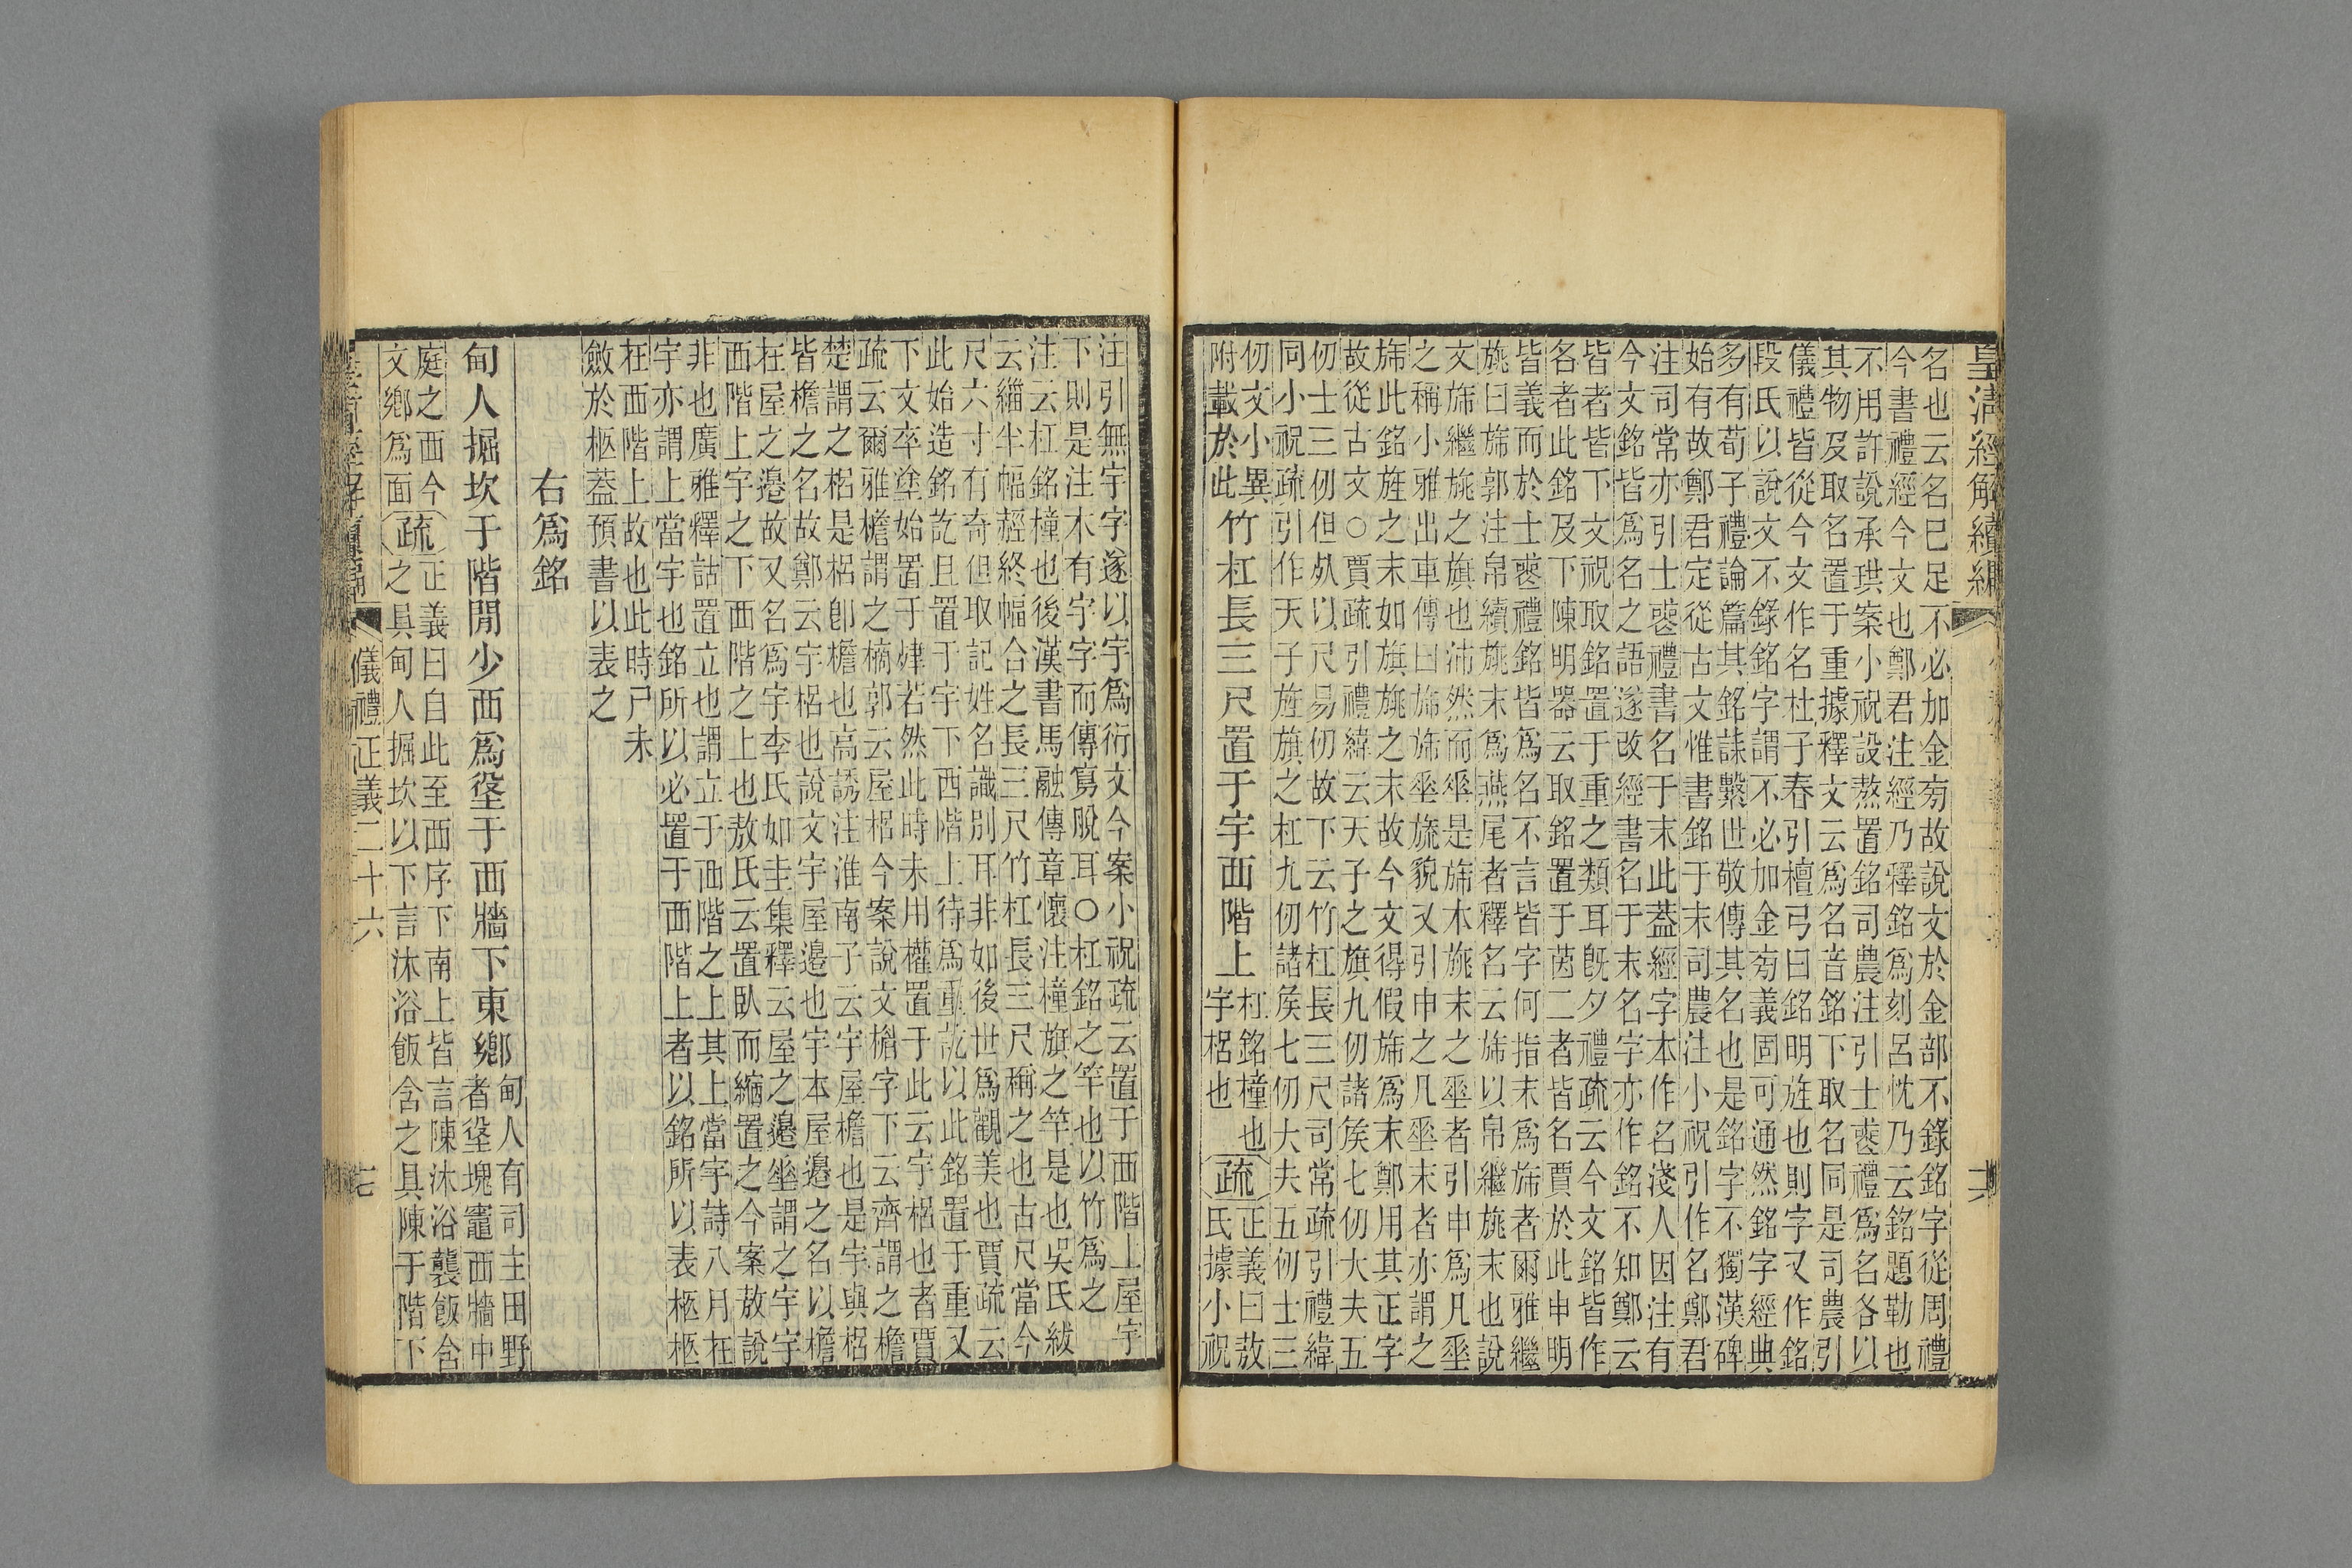 皇清經解續編
名也云名已足不必加金旁故說文於金部不錄銘字從周禮
今書禮經今文也鄭君注經乃釋銘爲刻呂忱乃云銘題勒也
不用許說承珙案小祝設熬置銘司農注引士喪禮爲名各以
其物及取名置于重據釋文云爲名音銘下取名同是司農引
儀禮皆從今文作名杜子春引檀弓曰銘明旌也則字又作銘
段氏以說文不錄銘字謂不必加金旁義固可通然銘字經典
多有荀子禮論篇其銘誄繫世敬傳其名也是銘字不獨漢碑
始有故鄭君定從古文惟書銘于末司農注小祝引作名鄭君
注司常亦引士喪禮書名于末此蓋經字本作名淺人因注有
今文銘皆爲名之語遂改經書名于末名字亦作銘不知鄭云
皆者皆下文祝取銘置于重之類耳旣夕禮疏云今文銘皆作
各者此銘及下陳明器云取銘置于茵二者皆名賈於此申明
皆義而於士喪禮銘皆爲名不言皆字何指末爲旆者爾雅繼
旐曰旆郭注帛續旐末爲燕尾者釋名云旆以帛繼旐末也說
文旆繼旐之旗也沛然而垂是旆本旐末之垂者引申爲凡垂
之稱小雅出車傳曰旆旆垂旒貌又引申之凡垂末者亦謂之
旆此銘旌之末如旗旐之末故今文得假旆爲末鄭用其正字
故從古文○賈疏引禮緯云天子之旗九仞諸矦七仞大夫五
仞士三仞但㒳以尺易仞故下云竹杠長三尺司常疏引禮緯
同小祝疏引作天子旌旗之杠九仞諸矦七仞大夫五仞士三
仞文小異
附載於此
竹杠長三尺置于宇西階上
杠銘橦也
宇梠也
疏
正義曰敖
氏據小祝
注引無宇字遂以宇爲衍文今案小祝疏云置于西階上屋宇
下則是注本有宇字而傳寫脫耳○杠銘之竿也以竹爲之
注云杠銘橦也後漢書馬融傳章懷注橦旗之竿是也吳氏紱
云緇半幅䞓終幅合之長三尺竹杠長三尺稱之也古尺當今
尺六寸有奇但取記姓名識別耳非如後世爲觀美也賈疏云
此始造銘訖且置于宇下西階上待爲重訖以此銘置于重又
下文卒塗始置于肂若然此時未用權置于此云宇梠也者賈
疏云爾雅檐謂之樀郭云屋梠今案說文楣字下云齊謂之檐
楚謂之梠是梠卽檐也高誘注淮南子云宇屋檐也是宇與梠
皆檐之名故鄭云宇梠也說文宇屋邊也宇本屋邊之名以檐
在屋之邊故又名爲宇李氏如圭集釋云屋之邊垂謂之宇宇
西階上宇之下西階之上也敖氏云置臥而縮置之今案敖說
非也廣雅釋詁置立也謂立于西階之上其上當宇詩八月在
宇亦謂上當宇也銘所以必置于西階上者以銘所以表柩柩
在西階上故也此時尸未
斂於柩蓋預書以表之
右爲銘
甸人掘坎于階閒少西爲垼于西牆下東鄉
甸人有司主田野
者垼塊竈西牆中
庭之西今
文鄉爲面
疏
正義曰自此至西序下南上皆言陳沐浴襲飯含
之具甸人掘坎以下言沐浴飯含之具陳于階下
儀禮正義二十六